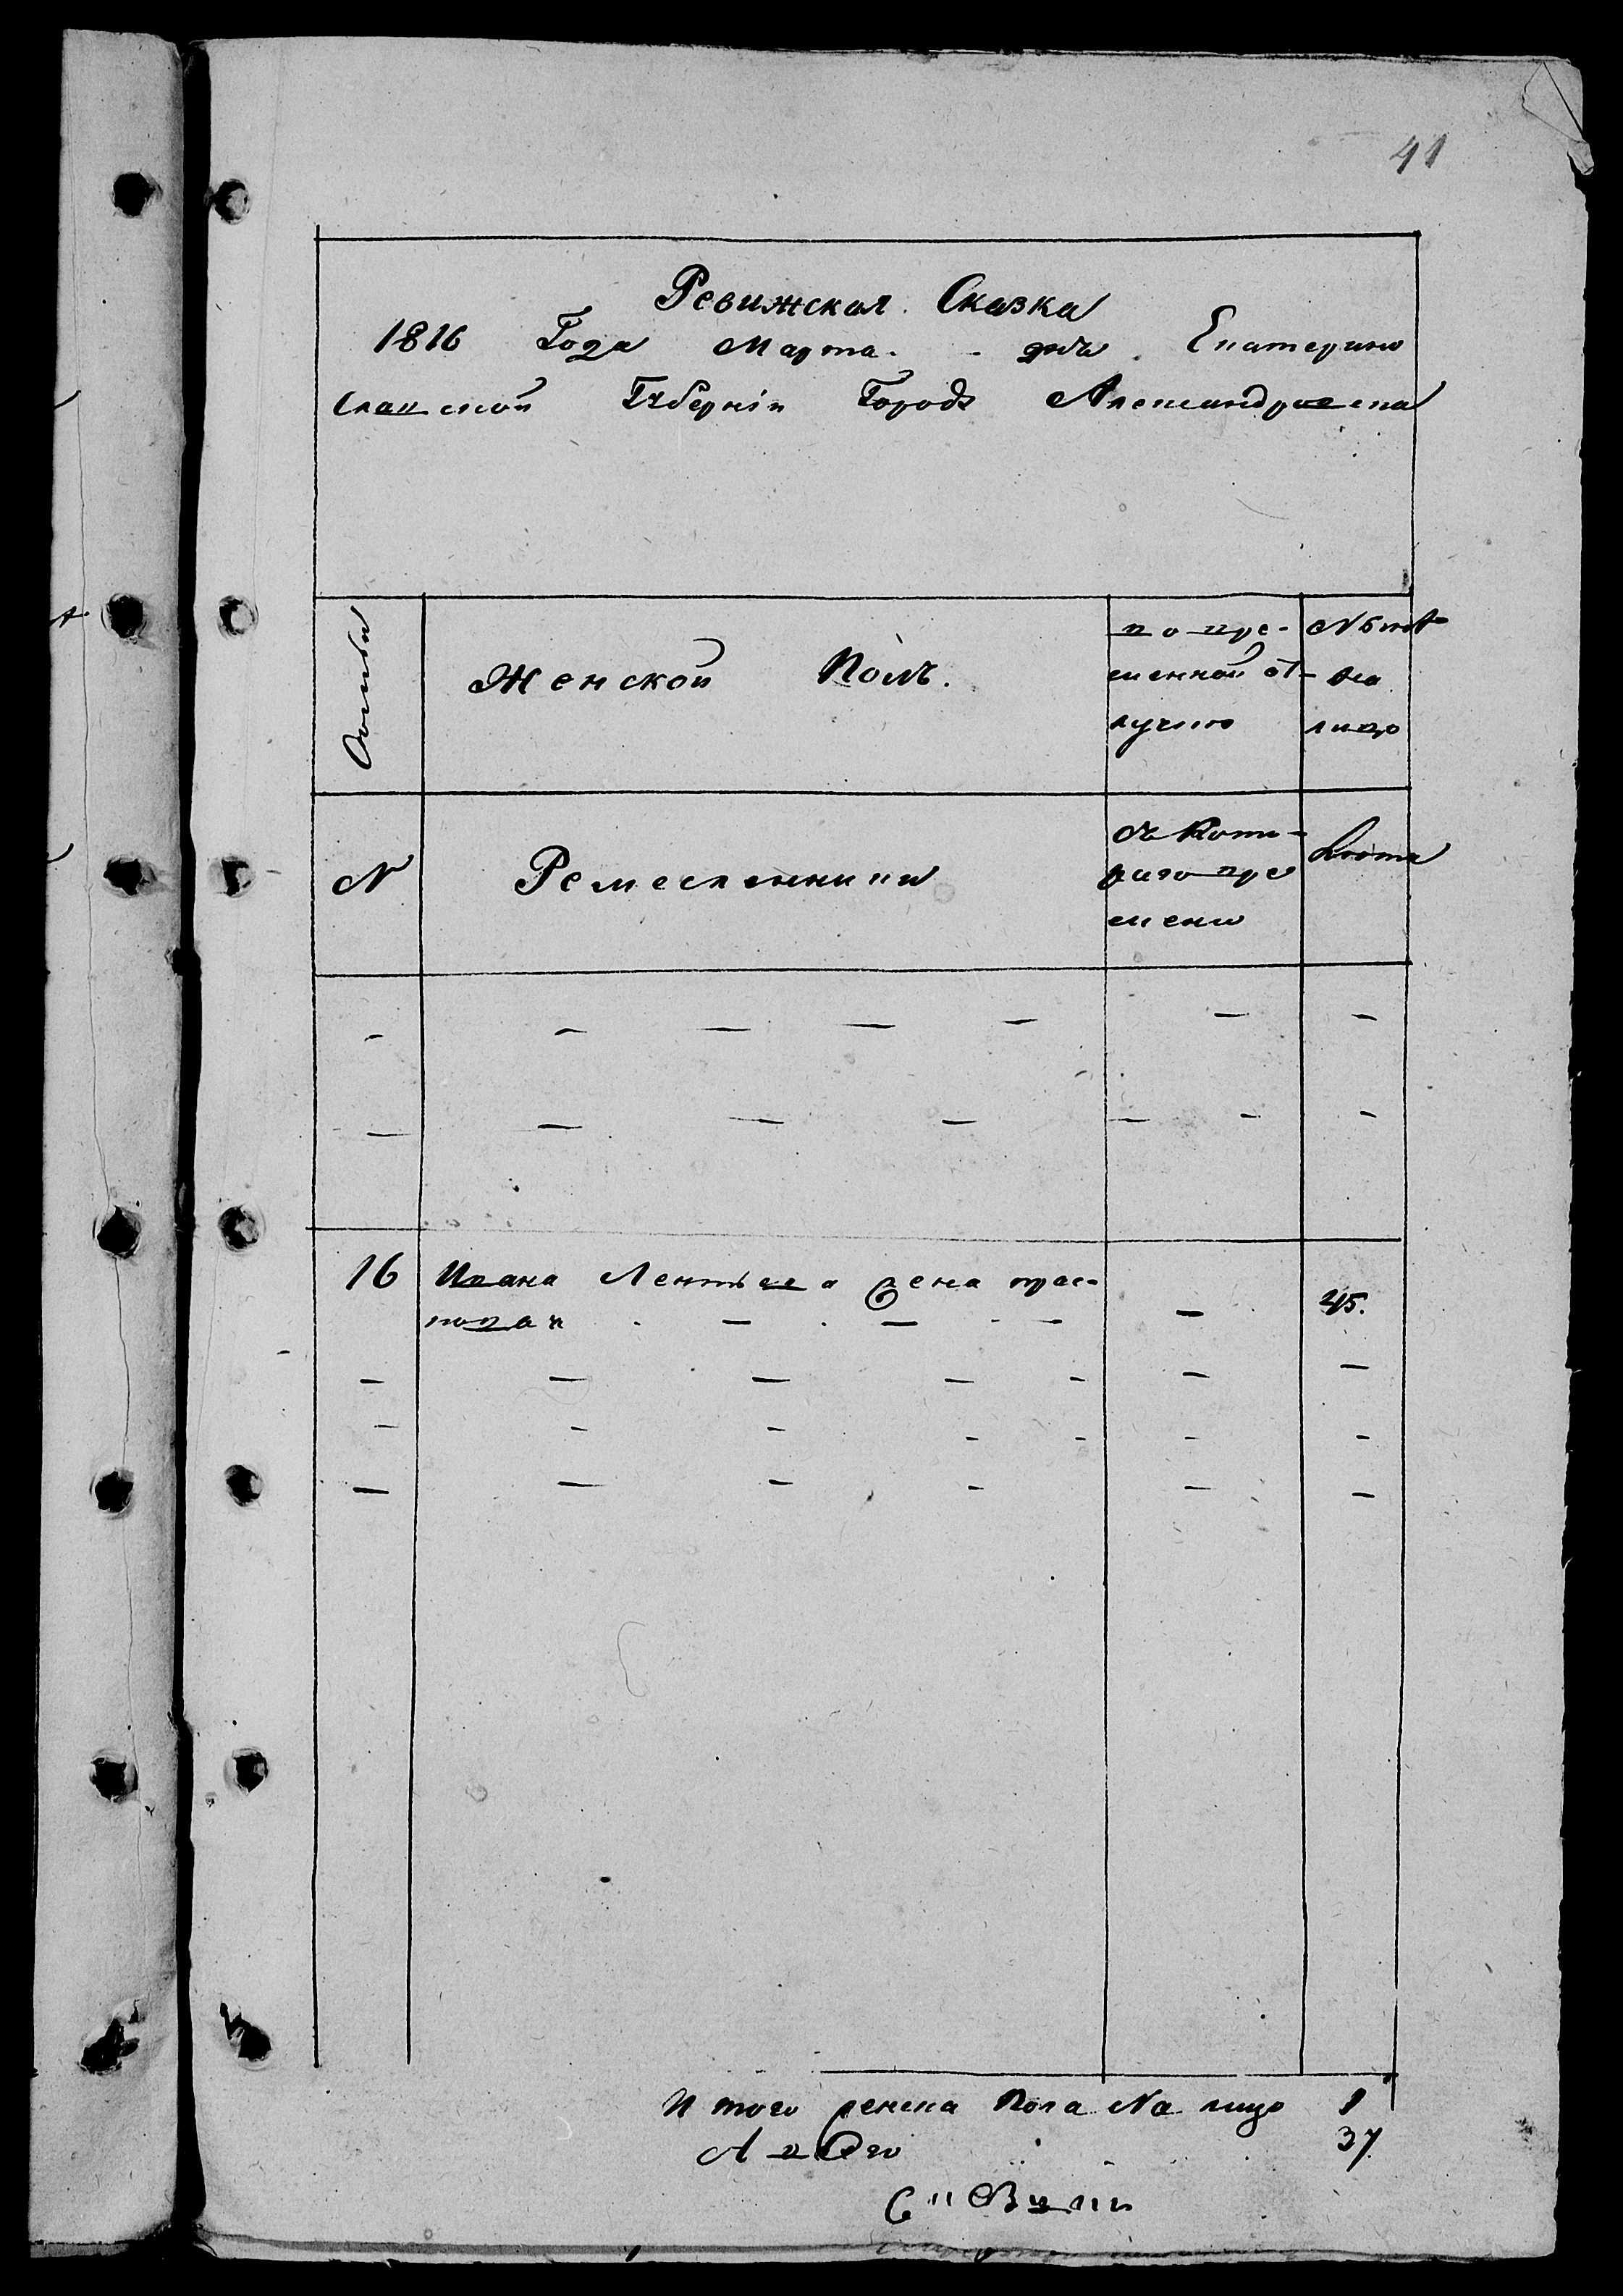 41
Ревижская Сказка
1816 Года Марта дня Екатерино
славской Губернiи Городъ Александровска
Семьи
Женской Полъ.
во вре-
менной от-
лучке
Ныне
на
лицо
N
Ремесленники
съ Кото-
раго вре
мени
Лета
16 Ивана Леонтьева жена прас-
ковая 45.
И того женска Пола На лицо 1
А всего 37